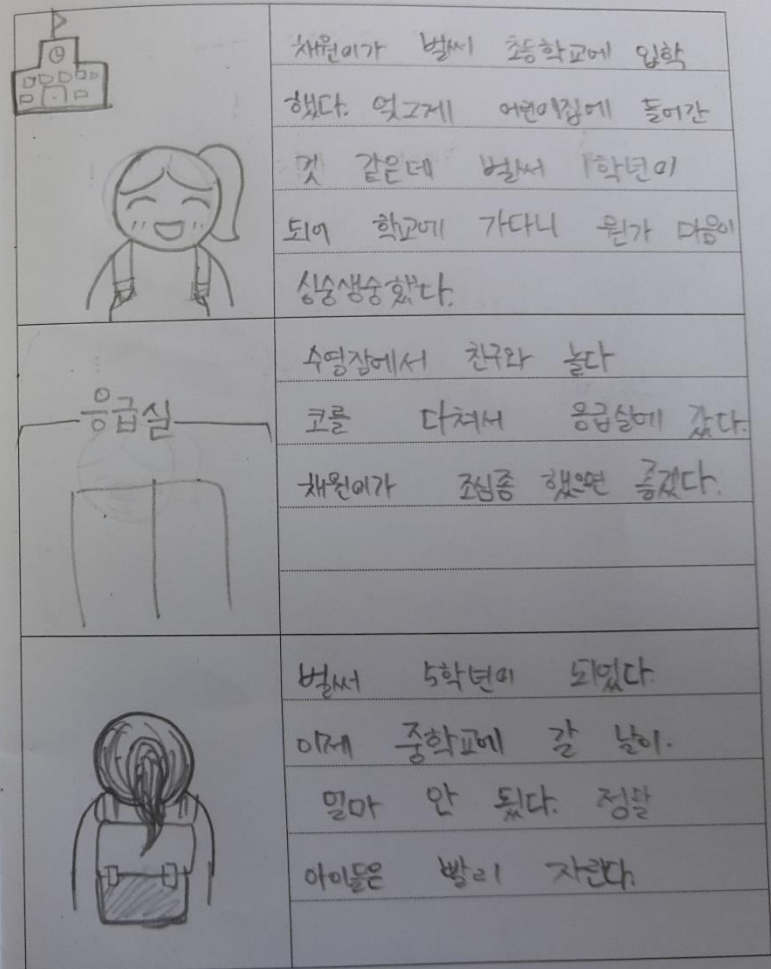 채원이가 벌써 초등학교에 입학
했다. 엊그제 어린이집에 들어간
것 같은데 벌써 1학년이
되어 학교에 가다니 뭔가 마음이
싱숭생숭했다.
응급실
수영장에서 친구와 놀다
코를 다쳐서 응급실에 갔다.
채원이가 조심좀 했으면 좋겠다.
벌써 5학년이 되었다.
이제 중학교에 갈 날이.
얼마 안 됬다. 정말
아이들은 빨리 자란다.